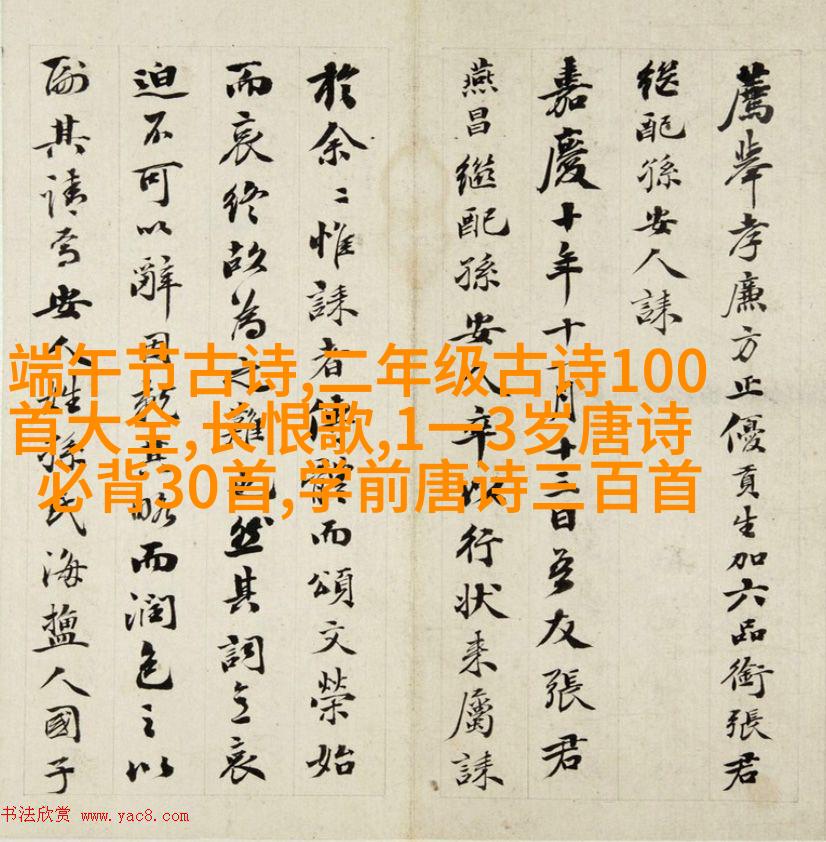 薦舉孝廉方正優貢生加六品銜張君
継配孫安人誄
嘉慶十年十月十三日吾友張君
燕昌繼配孫安人卒行状来屬誄
於余〻惟誄者傳體而頌文榮始
而哀終故為之難也然其詞哀
迫不可以辭因其略而潤色之以
副其請焉安人姓孫氏海鹽人國子
端午节古诗,二年级古诗100
首大全,长恨歌,1一3岁唐诗
必背30首,学前唐诗三百首
书法欣赏 www.yac8.com